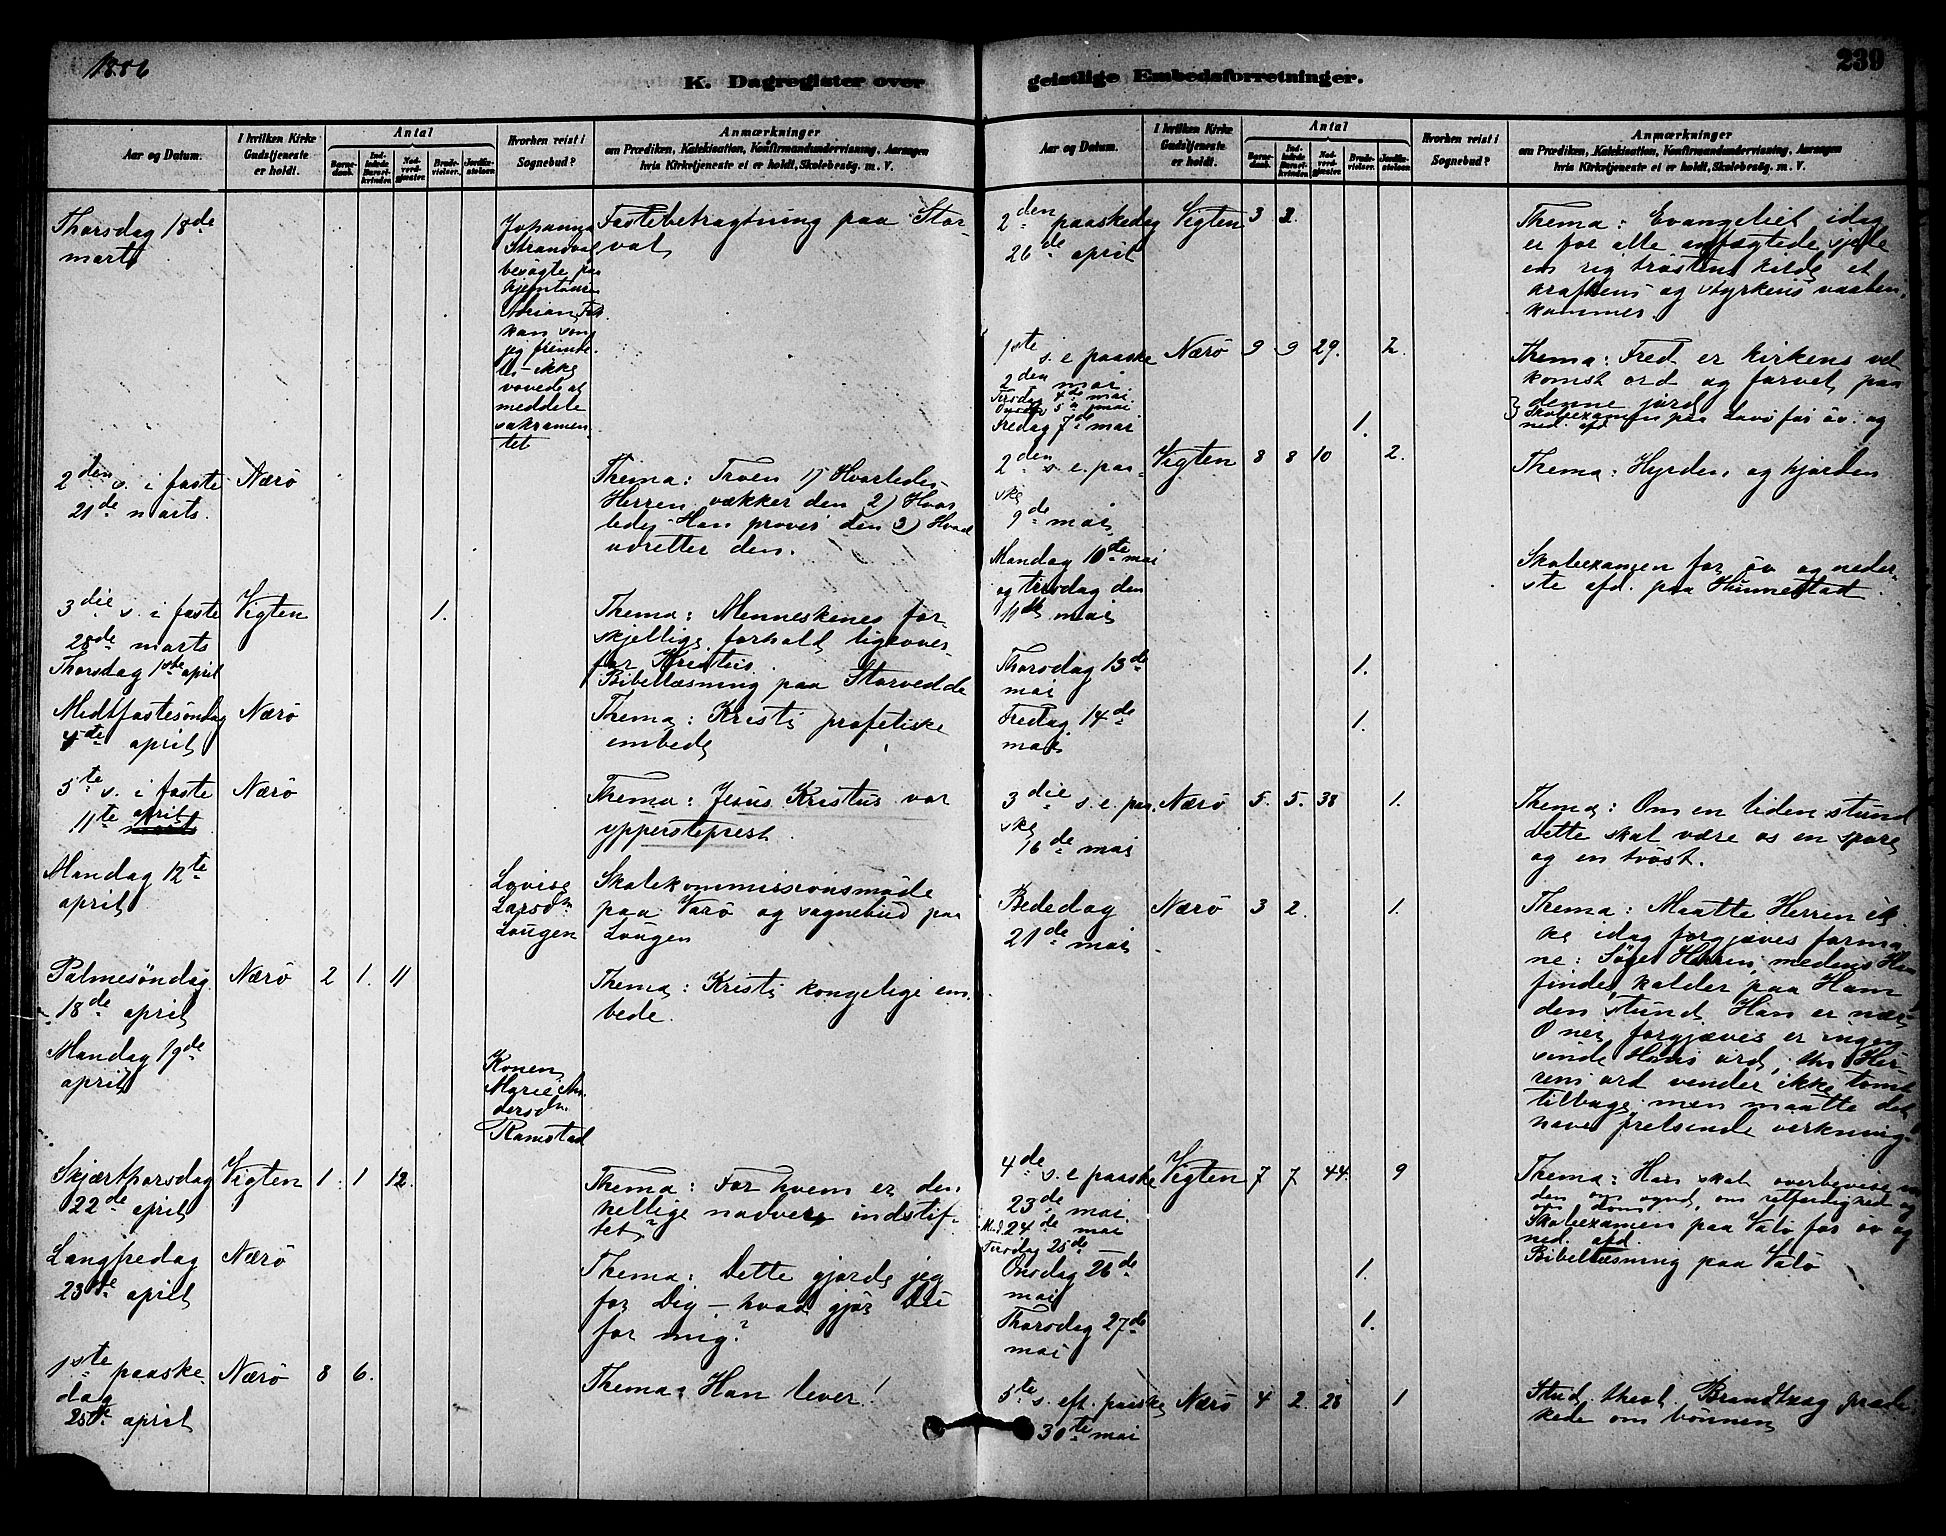 1886
239
K. Dagregister over geistlige Embedsforretninger.
Aar og Datum.
I hvilken Kirke Gudstjeneste er holdt.
Antal
Barnedaab.
Indledede Barselkvinder.
Nadverdgjæster.
Brudevielser.
Jordfæstelser.
Hvorhen reist i Sognebud?
Anmærkninger
om Prædiken, Katekisation, Konfirmandundervisning, Aarsagen
hvis Kirketjeneste ei er holdt, Skolebesøg. m. V.
Thorsdag 18de
marts
Johanna
Strandval
besøgte paa
hjemturen
kan som
jeg
ikke
vovede at
meddele
sakramen
tet
Fastebetragtning paa Stor-
val
2den s. i faste Nærö
21de marts.
Thema: Troen 1) Hvorledes
Herren vækker den 2) Hvor
ledes Han prøver den 3) Hvad
udretter den.
3die s. i faste Vigten 1.
28de marts
Thema: Menneskenes for-
skjellige forhold ligeover-
for Kristus.
Thorsdag 1ste april
Bibellæsning paa Storvedde
Midtfastesöndag Nærö
4de april
Thema: Kristi profetiske
embede
5te s. i faste Nærö
april
11te marts
Thema: Jesus Kristus vor
ypperstepræst.
Mandag 12te
april
Lovise
Larsdn
Lougen
Skolekommissionsmöde
paa Varö og sognebud paa
Lougen
Palmesöndag Nærö 2 1. 11
18de april
Thema: Kristi kongelige em-
bede.
Mandag 19de
april
Konen
Marie An
dersdn.
Ramstad
Skjærthorsdag Vigten 1. 1 12.
22de april
Thema: For hvem er den
hellige nadvere indstif-
tet?
Langfredag Nærö
23de april
Thema: Dette gjorde jeg
for Dig – hvad gjör Du
for mig?
1ste paaske- Nærö 8 6.
dag
25de april
Thema: Han lever!
Aar og Datum.
I hvilken Kirke Gudstjeneste er holdt.
Antal
Barnedaab.
Indledede Barselkvinder.
Nadverdgjæster.
Brudevielser.
Jordfæstelser.
Hvorhen reist i Sognebud?
Anmærkninger
om Prædiken, Katekisation, Konfirmandundervisning, Aarsagen
hvis Kirketjeneste ei er holdt, Skolebesøg. m. V.
2den paaskedag Vigten 3 2.
26de april
Thema: Evangeliet idag
er for alle anfægtede sjæle
en rig tröstens kilde et
kraftens og styrkens vaaben-
kammer.
1ste s. e paaske Nærö 9 9 29. 2.
2den mai
Thema: Fred er kirkens vel
komst ord og farvel paa
denne jord
Tirsdag 4de mai
Onsdag 5te mai
Skoleexamen paa for öv. og
ned. afd.
Fredag 7de mai 1.
2den s. e. paa- Vigten 8 8 10 2.
ske
9de mai
Thema: Hyrden og hjorden
Mandag 10de mai
og tirsdag den
11te mai
Skoleexamen for öv og neder-
ste afd. paa Hunnestad.
Thorsdag 13de 1.
mai
Fredag 14de 1.
mai
3die s. e. paa Nærö 5. 5. 38 1.
ske
16de mai
Thema: Om en liden stund
Dette skal være os en spore
og en tröst.
Bededag Nærö 3 2. 1.
21de mai
Thema: Maatte Herren ik
ke idag forgjæves forma
ne: Söger Herren, medens Han
findes, kalder paa Ham
den stund Han er nær
O nei, forgjæves er ingen
sinde Hans ord, thi Her
rens ord vender ikke tomt
tilbage; men maatte det
have frelsende virkning.
4de s. e paaske Vigten 7 7 44. 9
23de mai.
Thema: Han skal overbevise ver
den om synd, om retfærdighed og
om dom
Md. 24de mai
Tirsdag 25de —
Skoleexamen paa Valö for öv og
ned. afd.
Bibellæsning paa Valö
Onsdag 26de 1.
mai
Thorsdag 27de 1.
mai
5te s. eft. paaske Nærö 4 2. 28 1
30te mai
Stud. theol. Brandtzæg præde-
kede om bönnen